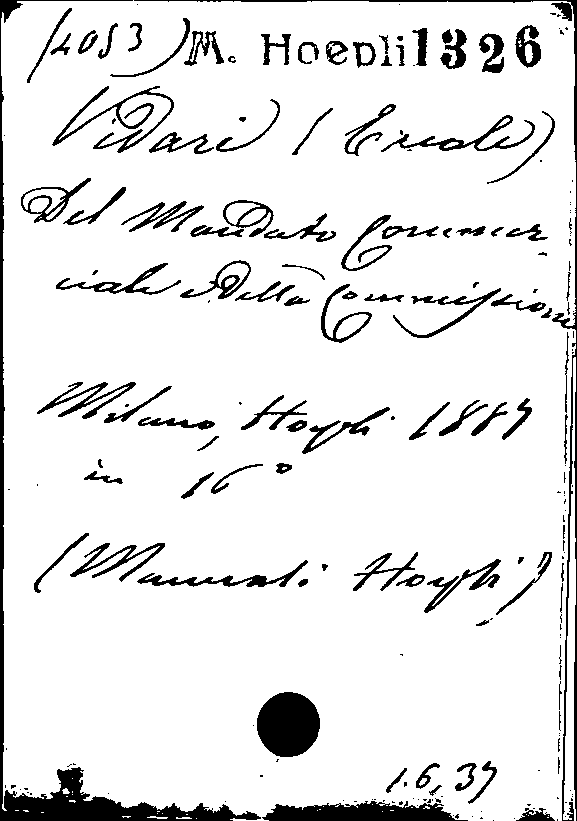 (2053) M. Hoepli 1326
Vidari (Ercole)
Del Mandato Commer-
ciale e della Commissione
Milano, Hoepli 1887
in 16°
(Manuali Hoepli)
1.6,37